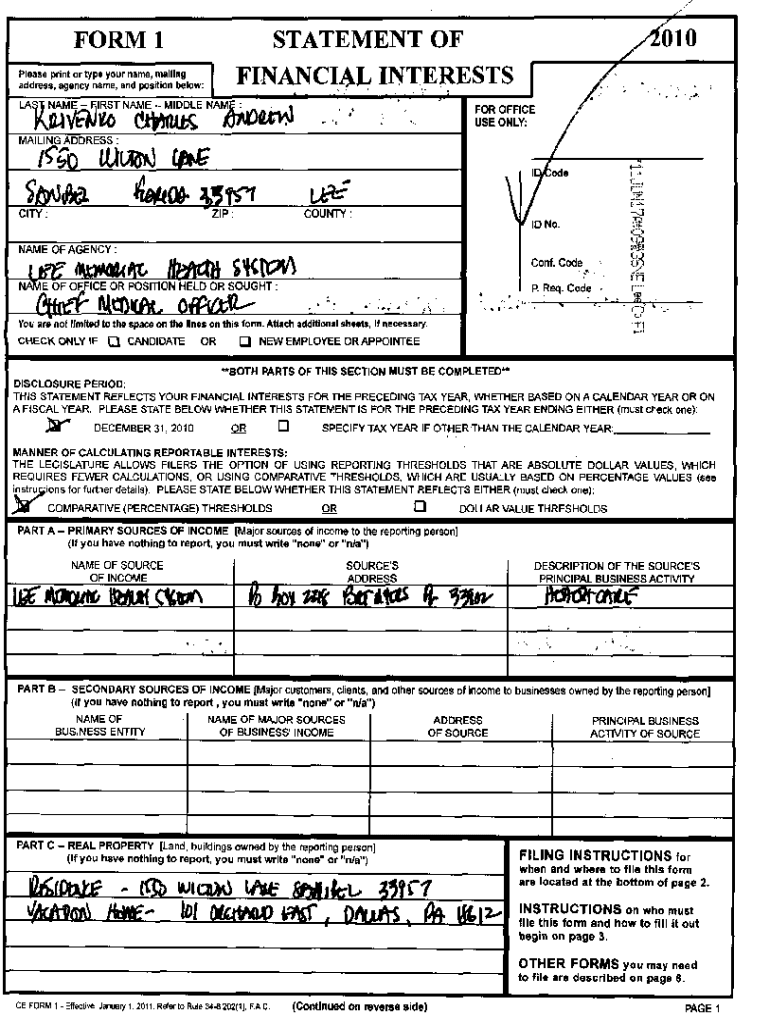 FORM 1 STATEMENT OF 2010
FINANCIAL INTERESTS
Please print or type your name, mailing
address, agency name, and position below:
LAST NAME -- FIRST NAME -- MIDDLE NAME :
KRIVENKO CHARLES ANDREW
FOR OFFICE
USE ONLY:
MAILING ADDRESS :
1550 WILTON LANE
SANIBEL FLORIDA 33957 LEE
CITY : ZIP : COUNTY :
ID Code
ID No.
Conf. Code
P. Req. Code
NAME OF AGENCY :
LEE MEMORIAL HEALTH SYSTEM
NAME OF OFFICE OR POSITION HELD OR SOUGHT :
CHIEF MEDICAL OFFICER
You are not limited to the space on the lines on this form. Attach additional sheets, if necessary.
CHECK ONLY IF ☐ CANDIDATE OR ☐ NEW EMPLOYEE OR APPOINTEE
**BOTH PARTS OF THIS SECTION MUST BE COMPLETED**
DISCLOSURE PERIOD:
THIS STATEMENT REFLECTS YOUR FINANCIAL INTERESTS FOR THE PRECEDING TAX YEAR, WHETHER BASED ON A CALENDAR YEAR OR ON
A FISCAL YEAR. PLEASE STATE BELOW WHETHER THIS STATEMENT IS FOR THE PRECEDING TAX YEAR ENDING EITHER (must check one):
DECEMBER 31, 2010 OR ☐ SPECIFY TAX YEAR IF OTHER THAN THE CALENDAR YEAR:
MANNER OF CALCULATING REPORTABLE INTERESTS:
THE LEGISLATURE ALLOWS FILERS THE OPTION OF USING REPORTING THRESHOLDS THAT ARE ABSOLUTE DOLLAR VALUES, WHICH
REQUIRES FEWER CALCULATIONS, OR USING COMPARATIVE THRESHOLDS, WHICH ARE USUALLY BASED ON PERCENTAGE VALUES (see
instructions for further details). PLEASE STATE BELOW WHETHER THIS STATEMENT REFLECTS EITHER (must check one):
COMPARATIVE (PERCENTAGE) THRESHOLDS OR ☐ DOLLAR VALUE THRESHOLDS
PART A -- PRIMARY SOURCES OF INCOME [Major sources of income to the reporting person]
(If you have nothing to report, you must write "none" or "n/a")
NAME OF SOURCE SOURCE'S DESCRIPTION OF THE SOURCE'S
OF INCOME ADDRESS PRINCIPAL BUSINESS ACTIVITY
LEE MEMORIAL HEALTH SYSTEM PO BOX 2218 FORT MYERS FL 33902 HEALTHCARE
PART B -- SECONDARY SOURCES OF INCOME [Major customers, clients, and other sources of income to businesses owned by the reporting person]
(If you have nothing to report , you must write "none" or "n/a")
NAME OF NAME OF MAJOR SOURCES ADDRESS PRINCIPAL BUSINESS
BUSINESS ENTITY OF BUSINESS' INCOME OF SOURCE ACTIVITY OF SOURCE
PART C -- REAL PROPERTY [Land, buildings owned by the reporting person]
(If you have nothing to report, you must write "none" or "n/a")
RESIDENCE - 1550 WILTON LANE SANIBEL 33957
VACATION HOME - 101 ORCHARD EAST, DALLAS, PA 18612
FILING INSTRUCTIONS for
when and where to file this form
are located at the bottom of page 2.
INSTRUCTIONS on who must
file this form and how to fill it out
begin on page 3.
OTHER FORMS you may need
to file are described on page 6.
CE FORM 1 - Effective: January 1, 2011. Refer to Rule 34-8.202(1), F.A.C. (Continued on reverse side) PAGE 1